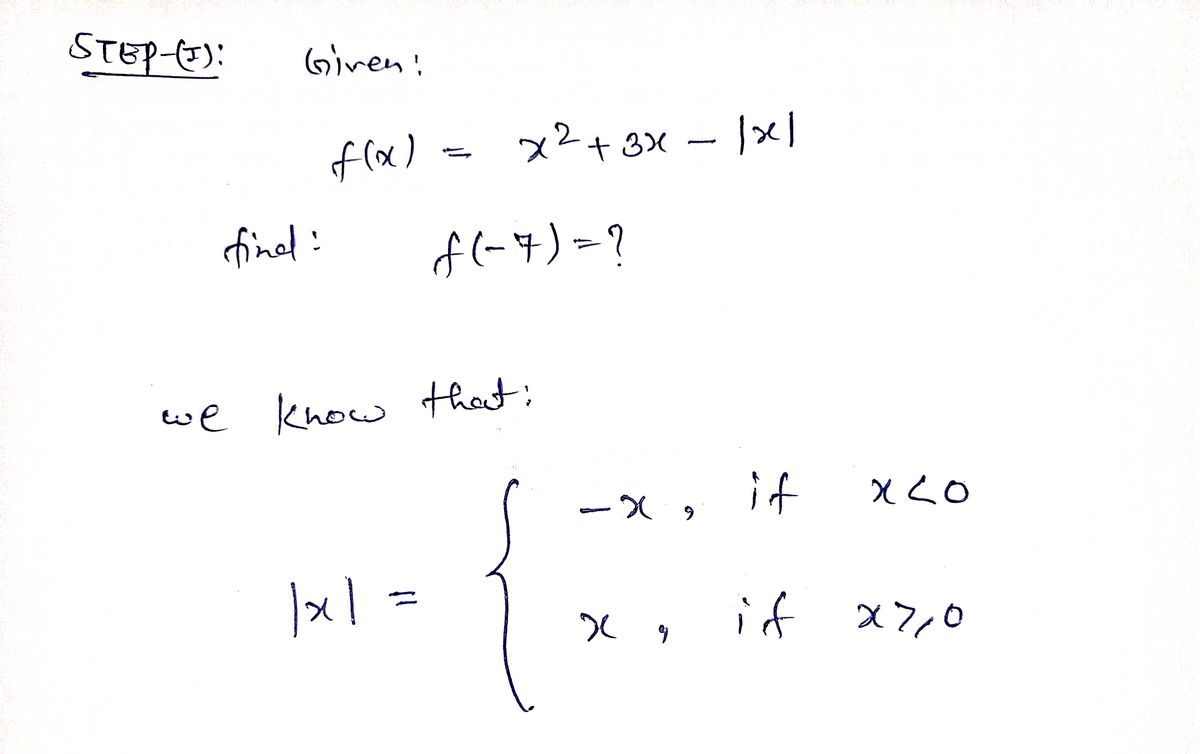 STEP-(I): Given:
f(x) = x² + 3x - |x|
find: f(-7) = ?
we know that:
-x, if x<0
|x| = {
x, if x≥0